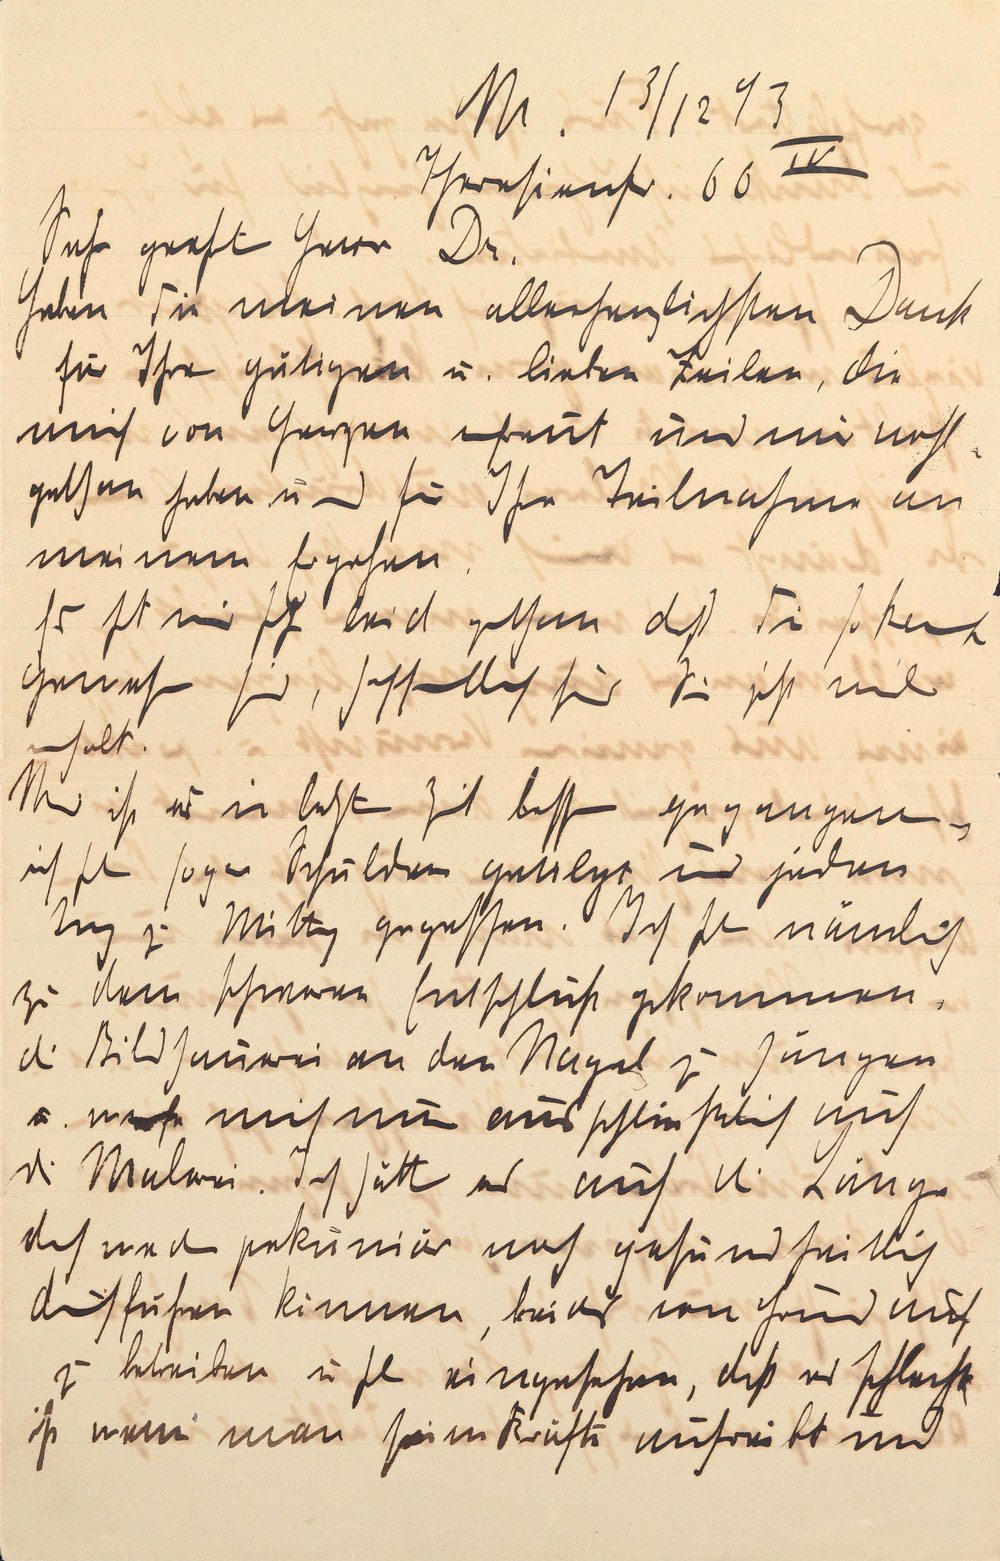 M. 13/12 93
Theresienstr. 66 IV
Sehr geehrt Herr Dr.
Haben Sie meinen allerherzlichsten Dank
für Ihre gütigen u. lieben Zeilen, die
mich von Herzen erfreut und mir wohl-
gethan haben und für Ihre Teilnahme an
meinem Ergehen.
Es hat mir sehr leid gethan daß Sie so krank
gewesen sind, hoffentlich sind Sie jetzt wieder
erholt.
Mir ist es in letzter Zeit besser gegangen,
ich habe sogar Schulden getilgt und jeden
Tag zu Mittag gegessen. Ich habe nämlich
zu dem schweren Entschluß gekommen,
die Bildhauerei an den Nagel zu hängen
u. werfe mich nun ausschließlich auf
die Malerei. Ich hätte es auf die Länge
doch weder pekuniär noch gesundheitlich
durchführen können, beides von Grund auf
zu betreiben u habe eingesehen, daß es schlecht
ist wenn man seine Kräfte aufreibt und